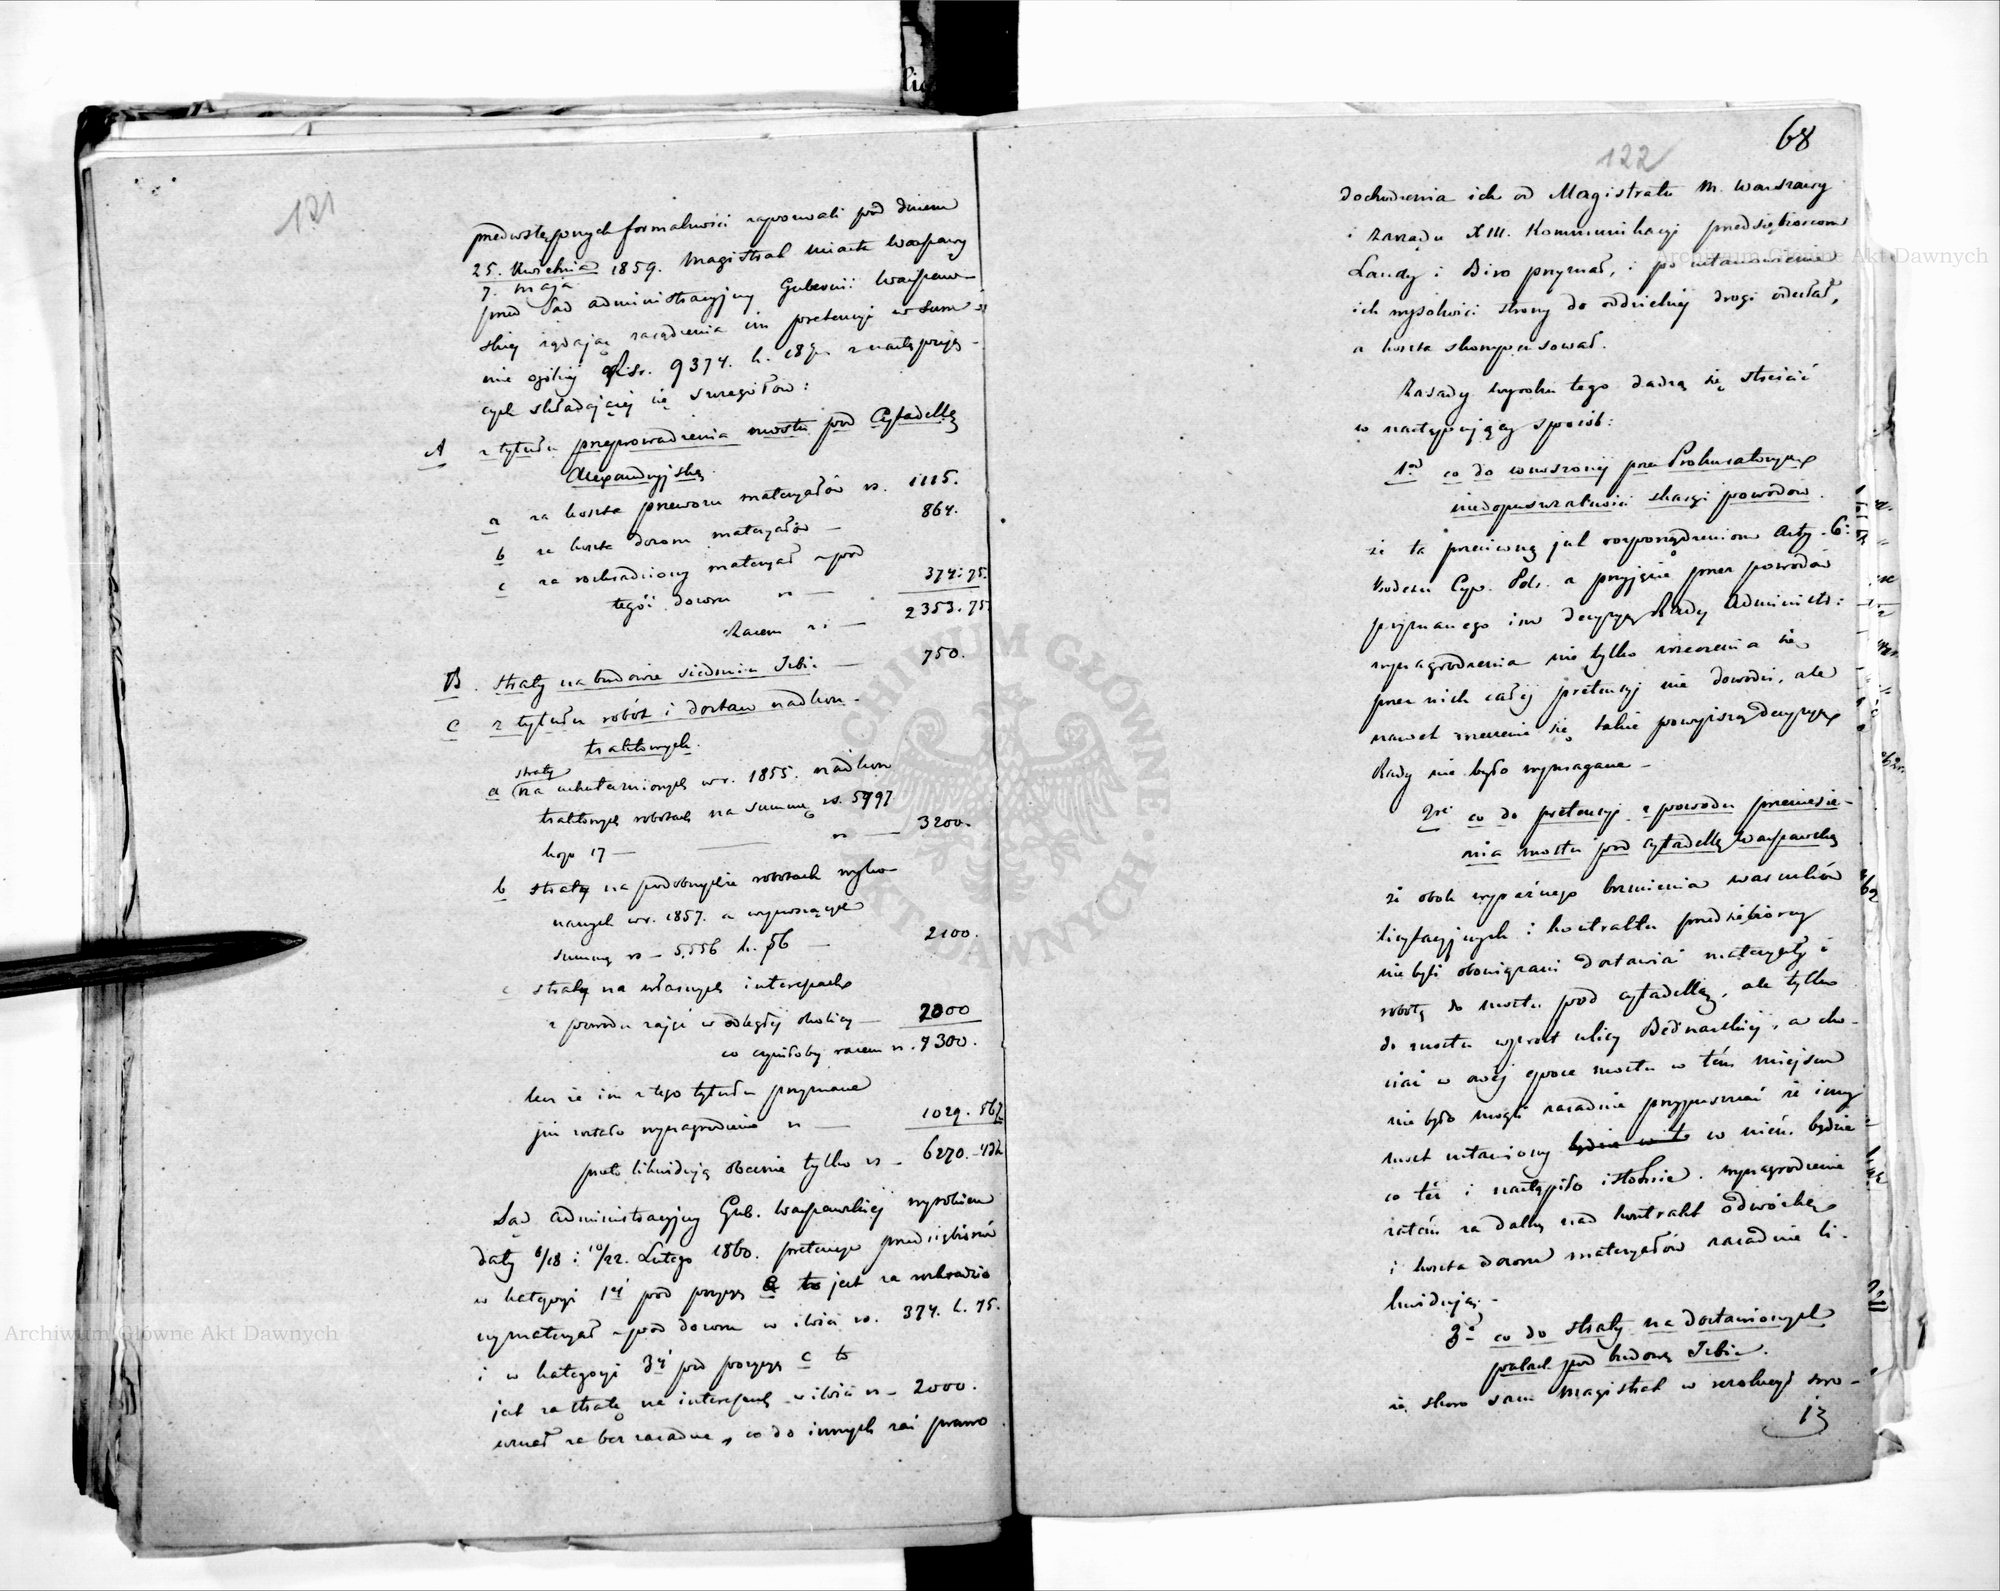 121
przedwstępnych formalności zapozwali pod dniem
25. Kwietnia 1859. Magistrat miasta Warszawy
7. maja
przed Sąd administracyjny Gubernii Warszaw-
skiej żądając zasądzenia im pretensyi w sum-
mie ogólnej Rsr. 9374. k. 18½ z następują-
cych składającej się szczegółów:
A z tytułu przeprowadzenia mostu pod Cytadellę
Alexandryjską.
a za koszta przewozu materyałów rs. 1115.
b za koszta dozoru materyałów — 864.
c za rozkradziony materyał z pod
tegoż dozoru rs — 374:75.
Razem rs — 2353.75
B. straty na budowie siedmiu Izbic — 750.
C z tytułu robót i dostaw nadkon-
traktowych.
straty
a na uskutecznionych w r. 1855. nadkon
traktowych robotach na summę rs. 5997
kop 17 — rs — 3200.
b straty na podobnychże robotach wyko-
nanych w r. 1857. a wynoszących
summę rs — 5,556 k. 56 — 2100.
c straty na własnych interesach
z powodu zajęć w odległej okolicy — 2000
co czyniłoby razem rs. 7300.
lecz że im z tego tytułu przyznane
już zostało wynagrodzenie rs — 1029. 56½
przeto likwidują obecnie tylko rs — 6270.-43½
Sąd administracyjny Gub. Warszawskiej wyrokiem
daty 6/18 i 10/22. Lutego 1860. pretensye przedsiębiorców
w kategoryi 1éj pod pozycyą c to jest za rozkradzio
ny materyał z pod dozoru w ilości rs. 374. k. 75.
i w kategoryi 3éj pod pozycyą c to
jest za stratę na interesach w ilości rs — 2000.
uznał za bezzasadne, co do innych zaś prawo
68
122
dochodzenia ich od Magistratu M. Warszawy
i Zarządu XIII. Kommunikacyi przedsiębiorcom
Landy i Biro przyznał, i po ustanowienie
ich wysokości strony do oddzielnej drogi odesłał,
a koszta skompensował.
Zasady wyroku tego dadzą się streścić
w następujący sposób:
1od co do wnoszonej przez Prokuratoryą
niedopuszczalności skargi powodów.
że ta przeciwną jest rozporządzeniom Arty. 6:
Kodexu Cyw. Pol. a przyjęcie przez powodów
przyznanego im decyzyą Rady Administr:
wynagrodzenia nie tylko zrzeczenia się
przez nich całej pretensyi nie dowodzi, ale
nawet zrzeczenie się takie powyższą decyzyą
Rady nie było wymagane —
2re co do pretensyi z powodu przeniesie-
nia mostu pod cytadellę Warszawską
że obok wyraźnego brzmienia warunków
licytacyjnych i kontraktu przedsiębiorcy
nie byli obowiązani dostawiać materyały i
robotę do mostu pod cytadellą, ale tylko
do mostu wprost ulicy Bednarskiej, a cho-
ciaż w owej epoce mostu w tém miejscu
nie było mogli zasadnie przypuszczać że inny
most ustawiony w niém będzie
co też i nastąpiło istotnie. wynagrodzenie
zatém za dalszą nad kontrakt odwózkę
i koszta dozoru materyałów zasadnie li-
kwidują. —
3e co do straty na dostawionych
palach pod budowę Izbic.
że skoro sam Magistrat w rezolucyi swo-
13